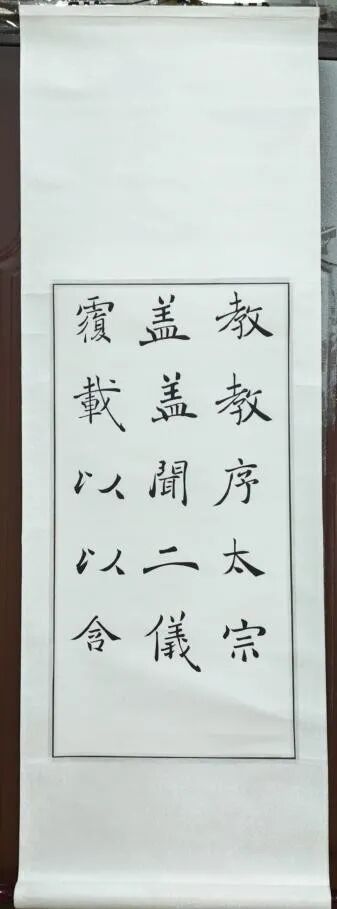 教教序太宗
盖盖聞二儀
覆載以以含